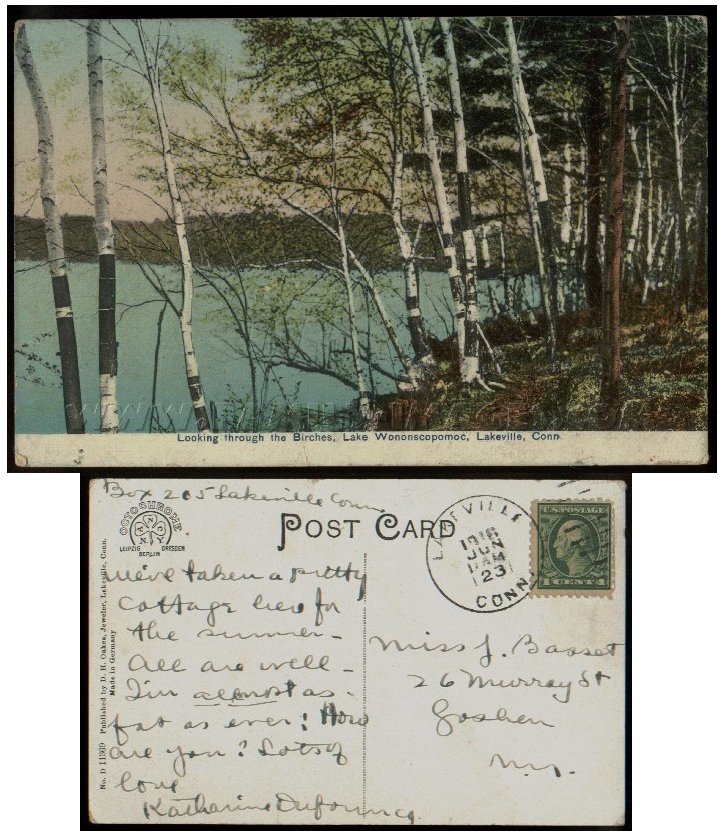 Looking through the Birches, Lake Wononscopomoc, Lakeville, Conn
Box 205 Lakeville Conn
OCTOCHROME
A N C
N.Y.
LEIPZIG DRESDEN
BERLIN
POST CARD
LAKEVILLE
1916
JUN
AM
23
CONN.
U.S. POSTAGE
1 CENT 1
No. D 11969 Published by D. H. Oakes, Jeweler, Lakeville, Conn.
Made in Germany
We've taken a pretty
cottage here for
the summer -
All are well -
I'm almost as
fat as ever! How
are you? Lots of
love
Katharine
Miss J. Basset
26 Murray St
Goshen
N.Y.